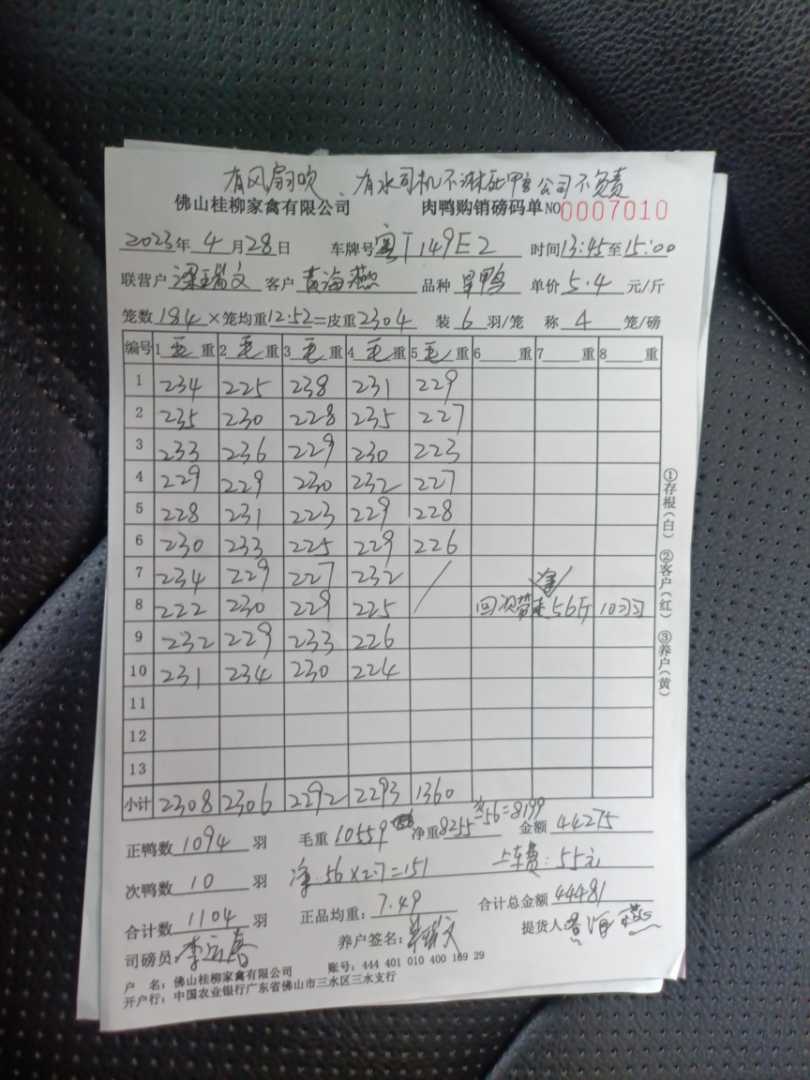 有风扇吹、有水司机不淋死鸭公司不负责
佛山桂柳家禽有限公司 肉鸭购销磅码单 NO 0007010
2023年4月28日 车牌号 粤T149E2 时间13:45至15:00
联营户 梁瑞文 客户 黄海燕 品种 旱鸭 单价 5.4 元/斤
笼数 184 ×笼均重 12.52 =皮重 2304 装 6 羽/笼 称 4 笼/磅
编号 1 毛 重 2 毛 重 3 毛 重 4 毛 重 5 毛 重 6 重 7 重 8 重
1 234 225 238 231 229
2 235 230 228 235 227
3 233 236 229 230 223
4 229 229 230 232 227
5 228 231 223 229 228
6 230 233 225 229 226
7 234 229 227 232 /
8 222 230 229 225
净
56斤 10羽
9 232 229 233 226
10 231 234 230 224
11
12
13
小计 2308 2306 2292 2293 1360
正鸭数 1094 羽 毛重 10559 净重 8255 -56=8199 金额 44275
次鸭数 10 羽 净.56×2.7=151 上车费:55元
合计数 1104 羽 正品均重: 7.49 合计总金额 44481
司磅员: 养户签名: 提货人
户 名:佛山桂柳家禽有限公司 账号:444 401 010 400 169 29
开户行:中国农业银行广东省佛山市三水区三水支行
①存根(白) ②客户(红) ③养户(黄)